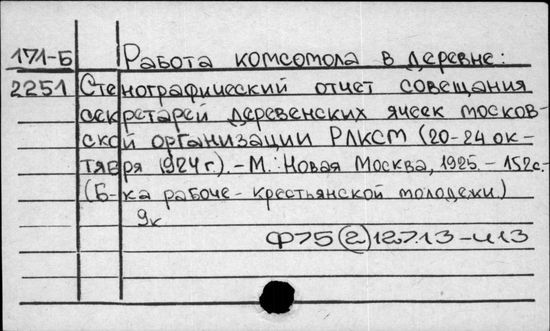 171-Б Работа комсомола в деревне:
2251 Стенографический отчет совещания
секретарей деревенских ячеек москов-
ской организации РЛКСМ (20-24 ок-
тября 1924 г.). – М.: Новая Москва, 1925. – 152с. –
(Б-ка рабоче-крестьянской молодежи)
9к
Ф75(2)12713-413